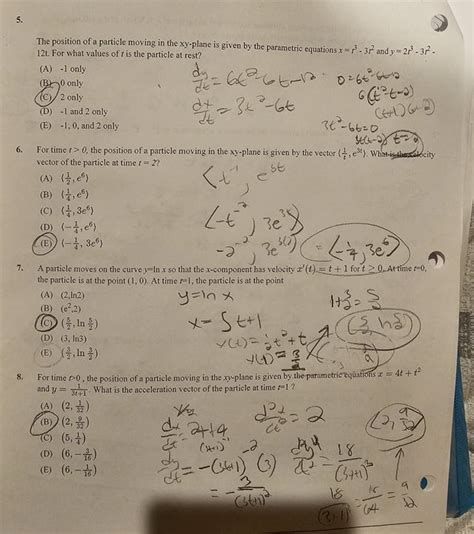 5.
The position of a particle moving in the xy-plane is given by the parametric equations x = t³ - 3t² and y = 2t³ - 3t² -
12t. For what values of t is the particle at rest?
(A) -1 only
(B) 0 only
(C) 2 only
(D) -1 and 2 only
(E) -1, 0, and 2 only
dy/dt = 6t² - 6t - 12
dx/dt = 3t² - 6t
0 = 6t² - 6t - 12
6(t² - t - 2)
(t+1)(t-2)
3t² - 6t = 0
3t(t-2) t = 0
6. For time t > 0, the position of a particle moving in the xy-plane is given by the vector ⟨1/t, e^(3t)⟩. What is the velocity
vector of the particle at time t = 2?
(A) ⟨1/2, e⁶⟩
(B) ⟨1/4, e⁶⟩
(C) ⟨1/4, 3e⁶⟩
(D) ⟨-1/4, e⁶⟩
(E) ⟨-1/4, 3e⁶⟩
⟨t⁻¹, e^(3t)
⟨-t⁻², 3e^(3t)⟩
-2⁻², 3e^(3(2)) = ⟨-1/4, 3e⁶⟩
7. A particle moves on the curve y=ln x so that the x-component has velocity x'(t) = t + 1 for t ≥ 0. At time t=0,
the particle is at the point (1, 0). At time t=1, the particle is at the point
(A) (2,ln2)
(B) (e²,2)
(C) (5/2, ln 5/2)
(D) (3, ln3)
(E) (3/2, ln 3/2)
y = ln x
x - ∫ t+1
x(t) = 1/2 t² + t
x(1) = 3/2
1 + 3/2 = 5/2
(5/2, ln 5/2)
8. For time t>0, the position of a particle moving in the xy-plane is given by the parametric equations x = 4t + t²
and y = 1/(3t+1). What is the acceleration vector of the particle at time t=1?
(A) (2, 1/32)
(B) (2, 9/32)
(C) (5, 1/4)
(D) (6, -3/16)
(E) (6, -1/16)
dx/dt = 2t+4
d²x/dt² = 2
(2, 9/32)
dy/dt = -(3t+1)⁻² (3)
= -3/(3t+1)²
18/(3t+1)³
18/(3+1)³ = 18/64 = 9/32